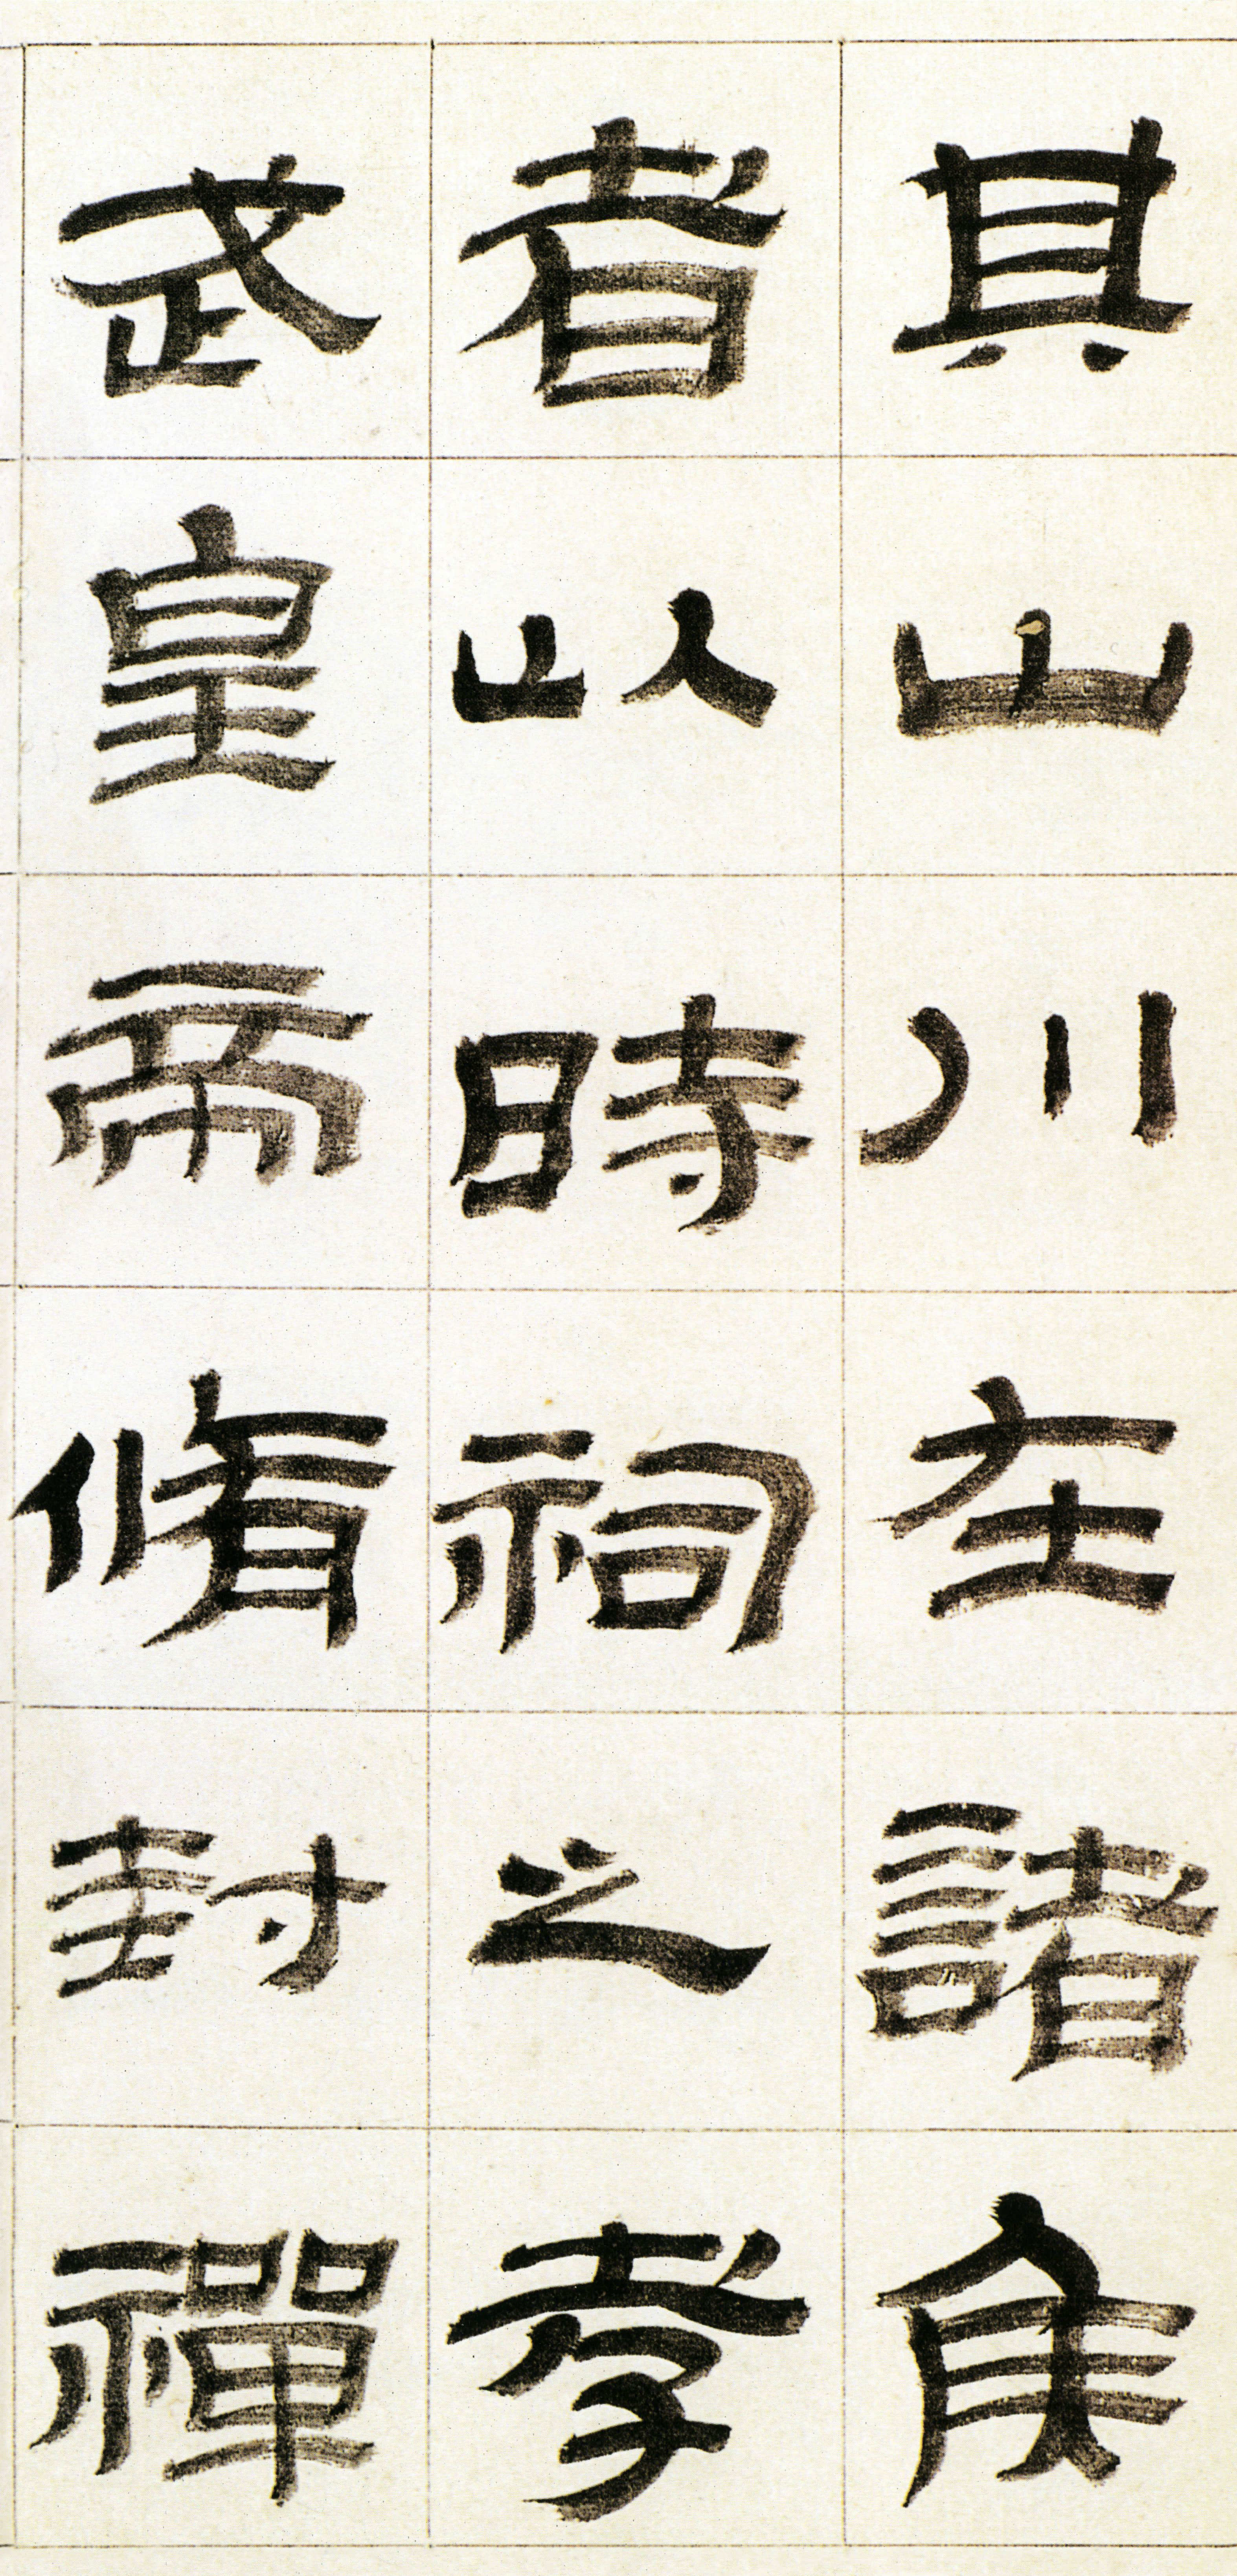 其山川在諸侯
者以時祠之孝
武皇帝脩封禪